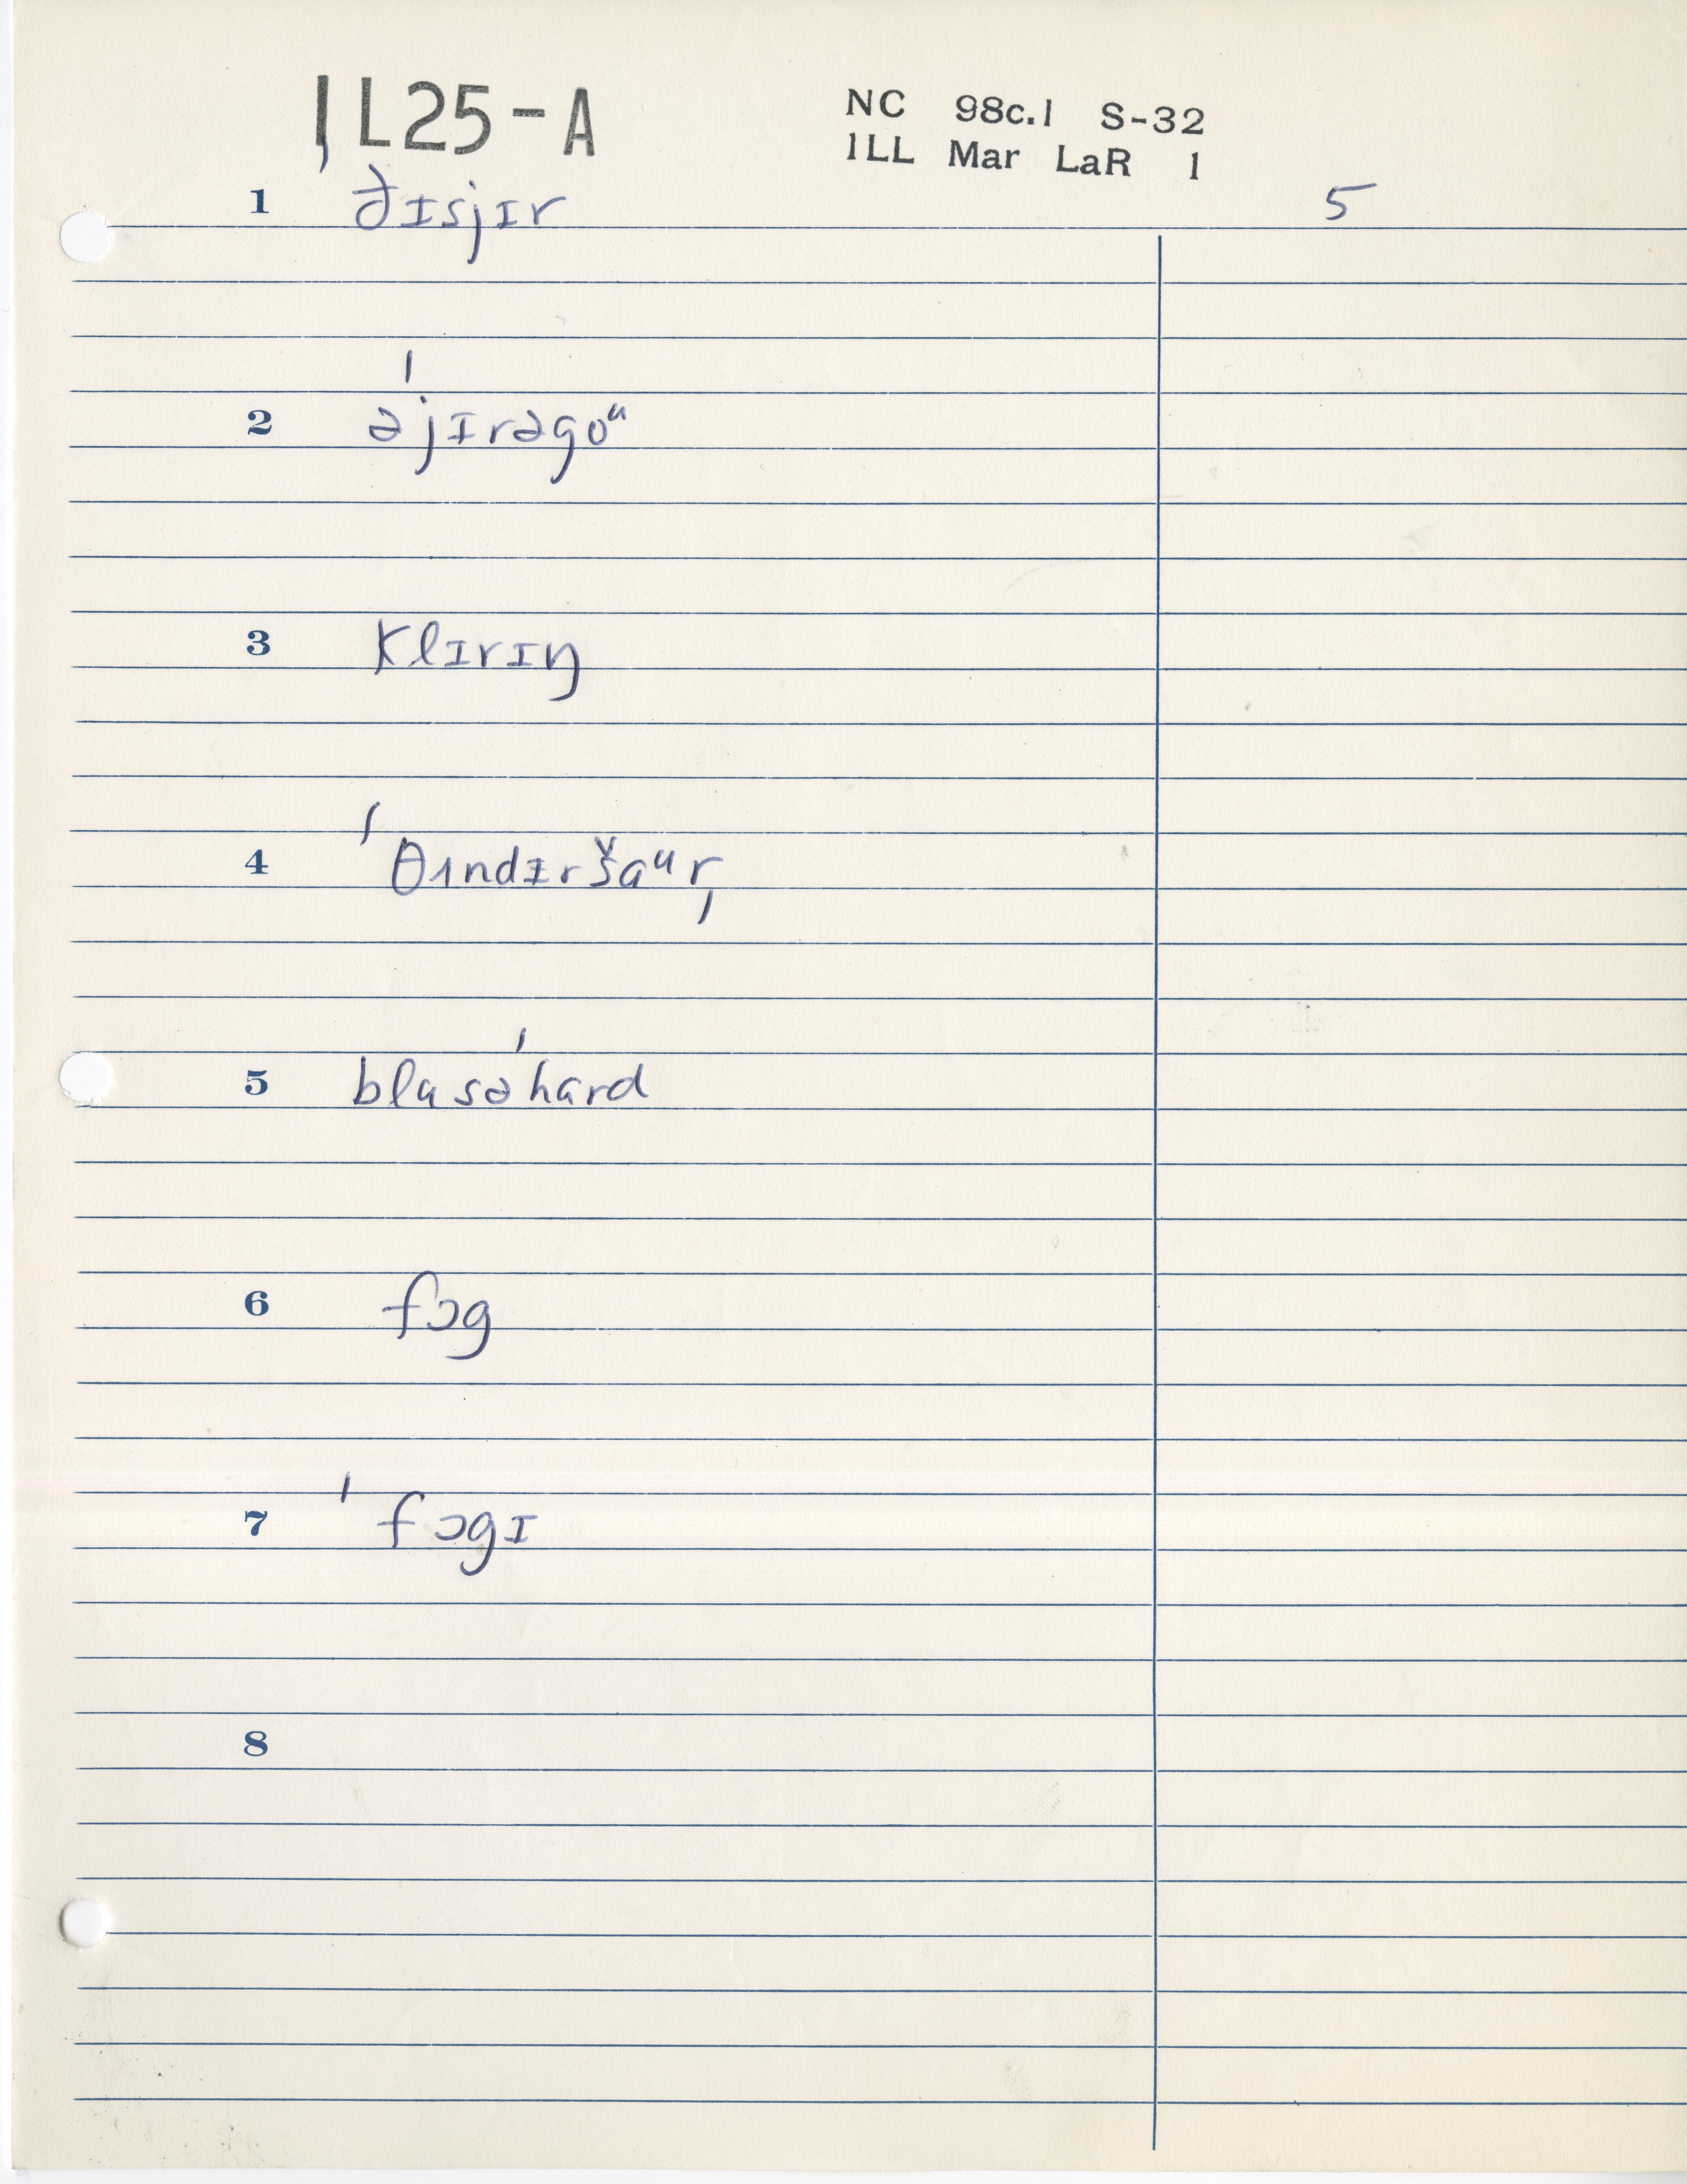 1L25-A
NC 98c.1 S-32
1LL Mar LaR 1
1 ˈðɪsjɪr 5
2 əˈjɪrəgoᵘ
3 klɪrɪŋ
4 ˈθɪndɪršaᵘrˌ
5 blasəˈhard
6 fɔg
7 ˈfɔgɪ
8